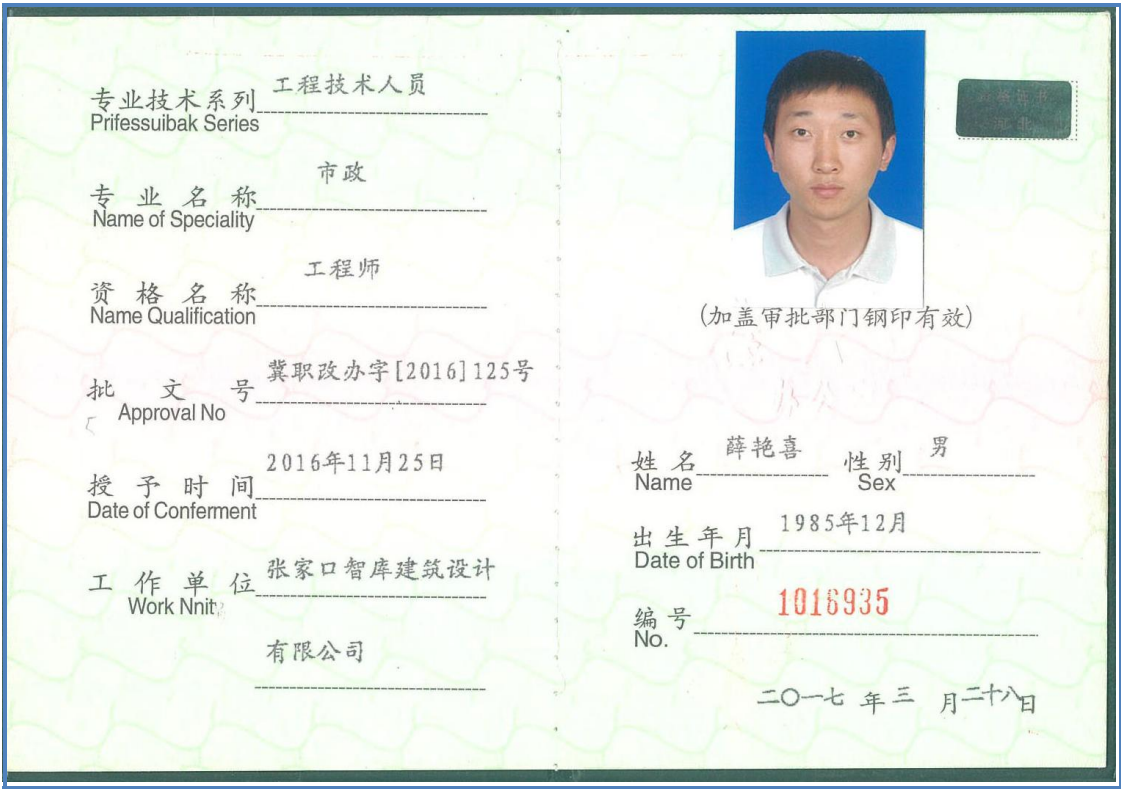 专业技术系列 工程技术人员
Prifessuibak Series
专业名称 市政
Name of Speciality
资格名称 工程师
Name Qualification
批文号 冀职改办字[2016]125号
Approval No
授予时间 2016年11月25日
Date of Conferment
工作单位 张家口智库建筑设计
Work Nnit
有限公司
(加盖审批部门钢印有效)
姓名 薛艳喜 性别 男
Name Sex
出生年月 1985年12月
Date of Birth
编号 1016935
No.
二〇一七年三月二十八日